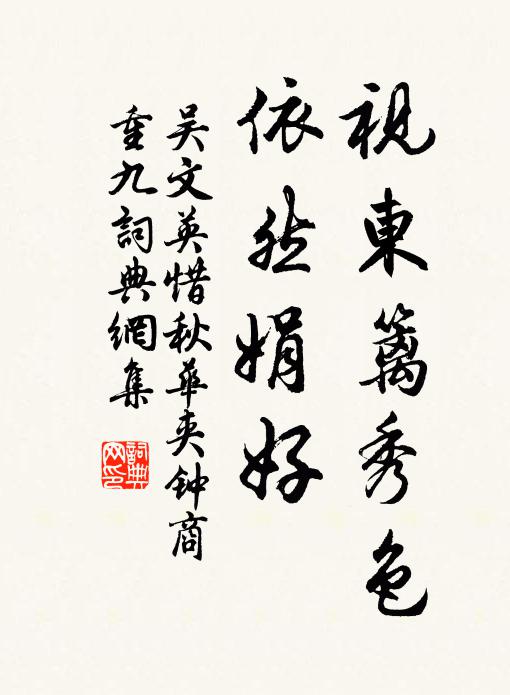 視東籬秀色
依然娟好
吳文英惜秋華夾钟商
重九詞典網集
詞典
网印